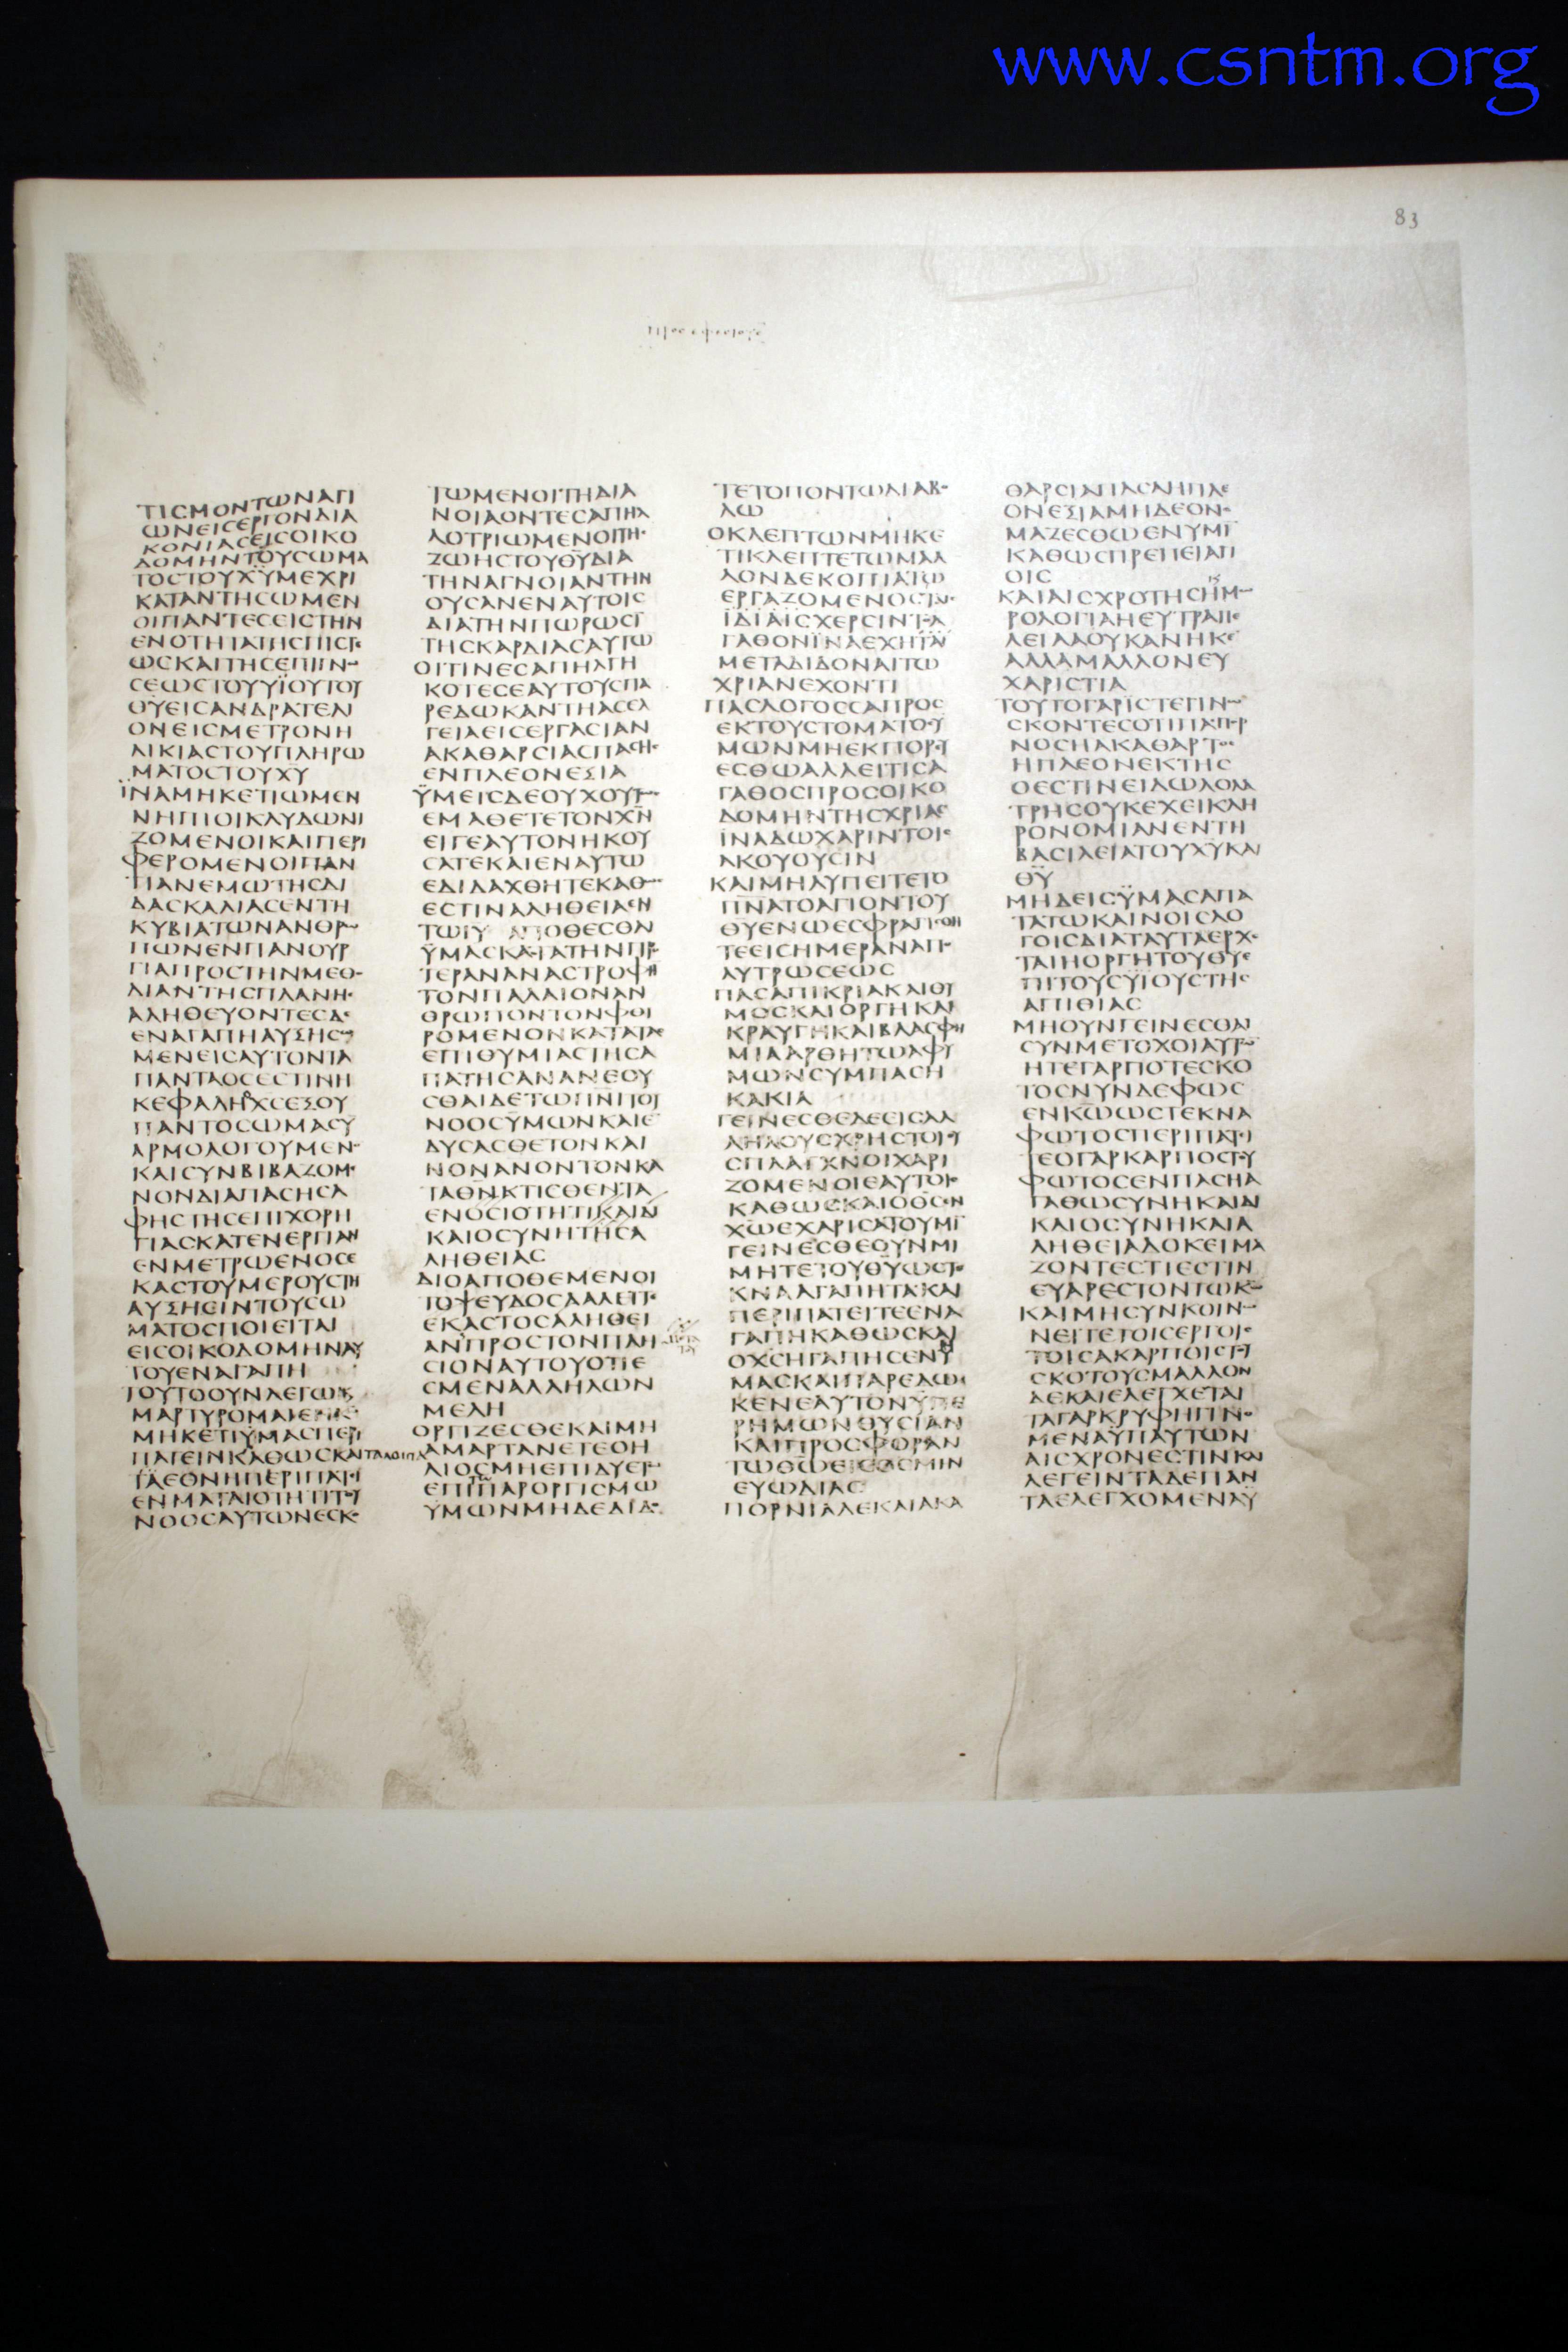 www.csntm.org
83
ΠΡΟϹΕΦΕϹΙΟΥϹ
ΤΙϹΜΟΝΤΩΝΑΓΙ
ΩΝΕΙϹΕΡΓΟΝΔΙΑ
ΚΟΝΙΑϹΕΙϹΟΙΚΟ
ΔΟΜΗΝΤΟΥϹΩΜΑ
ΤΟϹΤΟΥΧ̅Υ̅ΜΕΧΡΙ
ΚΑΤΑΝΤΗϹΩΜΕΝ
ΟΙΠΑΝΤΕϹΕΙϹΤΗΝ
ΕΝΟΤΗΤΑΤΗϹΠΙϹΤΕ
ΩϹΚΑΙΤΗϹΕΠΙΓΝΩ
ϹΕΩϹΤΟΥΥΪΟΥΤΟΥ
ΘΥΕΙϹΑΝΔΡΑΤΕΛΙ
ΟΝΕΙϹΜΕΤΡΟΝΗ
ΛΙΚΙΑϹΤΟΥΠΛΗΡΩ
ΜΑΤΟϹΤΟΥΧΥ
ΪΝΑΜΗΚΕΤΙΩΜΕΝ
ΝΗΠΙΟΙΚΛΥΔΩΝΙ
ΖΟΜΕΝΟΙΚΑΙΠΕΡΙ
ΦΕΡΟΜΕΝΟΙΠΑΝ
ΤΙΑΝΕΜΩΤΗϹΔΙ
ΔΑϹΚΑΛΙΑϹΕΝΤΗ
ΚΥΒΙΑΤΩΝΑΝΘΡΩ
ΠΩΝΕΝΠΑΝΟΥΡ
ΓΙΑΠΡΟϹΤΗΝΜΕΘΟ
ΔΙΑΝΤΗϹΠΛΑΝΗϹ
ΑΛΗΘΕΥΟΝΤΕϹΔΕ
ΕΝΑΓΑΠΗΑΥΞΗϹΩ
ΜΕΝΕΙϹΑΥΤΟΝΤΑ
ΠΑΝΤΑΟϹΕϹΤΙΝΗ
ΚΕΦΑΛΗΟΧϹΕΞΟΥ
ΠΑΝΤΟϹΩΜΑϹΥ
ΑΡΜΟΛΟΓΟΥΜΕΝΟ
ΚΑΙϹΥΝΒΙΒΑΖΟΜΕ
ΝΟΝΔΙΑΠΑϹΗϹΑ
ΦΗϹΤΗϹΕΠΙΧΟΡΗ
ΓΙΑϹΚΑΤΕΝΕΡΓΙΑΝ
ΕΝΜΕΤΡΩΕΝΟϹΕ
ΚΑϹΤΟΥΜΕΡΟΥϹΤΗ
ΑΥΞΗϹΙΝΤΟΥϹΩ
ΜΑΤΟϹΠΟΙΕΙΤΑΙ
ΕΙϹΟΙΚΟΔΟΜΗΝΑΥ
ΤΟΥΕΝΑΓΑΠΗ
ΤΟΥΤΟΟΥΝΛΕΓΩΚΑΙ
ΜΑΡΤΥΡΟΜΑΙΕΝΚΩ
ΜΗΚΕΤΙΫΜΑϹΠΕΡΙ
ΠΑΤΕΙΝΚΑΘΩϹΚΑΙ ΤΑΛΟΙΠΑ
ΤΑΕΘΝΗΠΕΡΙΠΑΤΕΙ
ΕΝΜΑΤΑΙΟΤΗΤΙΤΟΥ
ΝΟΟϹΑΥΤΩΝΕϹΚΟ
ΤΩΜΕΝΟΙΤΗΔΙΑ
ΝΟΙΑΟΝΤΕϹΑΠΗΛ
ΛΟΤΡΙΩΜΕΝΟΙΤΗϹ
ΖΩΗϹΤΟΥΘΥΔΙΑ
ΤΗΝΑΓΝΟΙΑΝΤΗΝ
ΟΥϹΑΝΕΝΑΥΤΟΙϹ
ΔΙΑΤΗΝΠΩΡΩϹΙ
ΤΗϹΚΑΡΔΙΑϹΑΥΤΩ
ΟΙΤΙΝΕϹΑΠΗΛΓΗ
ΚΟΤΕϹΕΑΥΤΟΥϹΠΑ
ΡΕΔΩΚΑΝΤΗΑϹΕΛ
ΓΕΙΑΕΙϹΕΡΓΑϹΙΑΝ
ΑΚΑΘΑΡϹΙΑϹΠΑϹΗϹ
ΕΝΠΛΕΟΝΕΞΙΑ
ΫΜΕΙϹΔΕΟΥΧΟΥΤΩ
ΕΜΑΘΕΤΕΤΟΝΧΝ
ΕΙΓΕΑΥΤΟΝΗΚΟΥ
ϹΑΤΕΚΑΙΕΝΑΥΤΩ
ΕΔΙΔΑΧΘΗΤΕΚΑΘΩ
ΕϹΤΙΝΑΛΗΘΕΙΑΕΝ
ΤΩΙΥ ΑΠΟΘΕϹΘΑΙ
ΫΜΑϹΚΑΤΑΤΗΝΠΡΟ
ΤΕΡΑΝΑΝΑϹΤΡΟΦΗ
ΤΟΝΠΑΛΑΙΟΝΑΝ
ΘΡΩΠΟΝΤΟΝΦΘΙ
ΡΟΜΕΝΟΝΚΑΤΑΤΑϹ
ΕΠΙΘΥΜΙΑϹΤΗϹΑ
ΠΑΤΗϹΑΝΑΝΕΟΥ
ϹΘΑΙΔΕΤΩΠΝΙΤΟΥ
ΝΟΟϹΫΜΩΝΚΑΙΕ
ΔΥϹΑϹΘΕΤΟΝΚΑΙ
ΝΟΝΑΝΟΝΤΟΝΚΑ
ΤΑΘΝΚΤΙϹΘΕΝΤΑ
ΕΝΟϹΙΟΤΗΤΙΚΑΙΔΙ
ΚΑΙΟϹΥΝΗΤΗϹΑ
ΛΗΘΕΙΑϹ
ΔΙΟΑΠΟΘΕΜΕΝΟΙ
ΤΟΨΕΥΔΟϹΛΑΛΕΙΤΕ
ΕΚΑϹΤΟϹΑΛΗΘΕΙ
ΑΝΠΡΟϹΤΟΝΠΛΗ
ϹΙΟΝΑΥΤΟΥΟΤΙΕ
ϹΜΕΝΑΛΛΗΛΩΝ
ΜΕΛΗ
ΟΡΓΙΖΕϹΘΕΚΑΙΜΗ
ΑΜΑΡΤΑΝΕΤΕΟΗ
ΛΙΟϹΜΗΕΠΙΔΥΕΤΩ
ΕΠΙΠΑΡΟΡΓΙϹΜΩ
ΫΜΩΝΜΗΔΕΔΙΔΟ
ΤΕΤΟΠΟΝΤΩΔΙΑΒΟ
ΛΩ
ΟΚΛΕΠΤΩΝΜΗΚΕ
ΤΙΚΛΕΠΤΕΤΩΜΑΛ
ΛΟΝΔΕΚΟΠΙΑΤΩ
ΕΡΓΑΖΟΜΕΝΟϹΤΑΙϹ
ΪΔΙΑΙϹΧΕΡϹΙΝΤΟΑ
ΓΑΘΟΝΪΝΑΕΧΗΤΑΙ
ΜΕΤΑΔΙΔΟΝΑΙΤΩ
ΧΡΙΑΝΕΧΟΝΤΙ
ΠΑϹΛΟΓΟϹϹΑΠΡΟϹ
ΕΚΤΟΥϹΤΟΜΑΤΟϹΥ
ΜΩΝΜΗΕΚΠΟΡΕΥ
ΕϹΘΩΑΛΛΕΙΤΙϹΑ
ΓΑΘΟϹΠΡΟϹΟΙΚΟ
ΔΟΜΗΝΤΗϹΧΡΙΑϹ
ΪΝΑΔΩΧΑΡΙΝΤΟΙϹ
ΑΚΟΥΟΥϹΙΝ
ΚΑΙΜΗΛΥΠΕΙΤΕΤΟ
ΠΝΑΤΟΑΓΙΟΝΤΟΥ
ΘΥΕΝΩΕϹΦΡΑΓΙϹΘΗ
ΤΕΕΙϹΗΜΕΡΑΝΑΠΟ
ΛΥΤΡΩϹΕΩϹ
ΠΑϹΑΠΙΚΡΙΑΚΑΙΘΥ
ΜΟϹΚΑΙΟΡΓΗΚΑΙ
ΚΡΑΥΓΗΚΑΙΒΛΑϹΦΗ
ΜΙΑΑΡΘΗΤΩΑΦΥ
ΜΩΝϹΥΜΠΑϹΗ
ΚΑΚΙΑ
ΓΕΙΝΕϹΘΕΔΕΕΙϹΑΛ
ΛΗΛΟΥϹΧΡΗϹΤΟΙΕΥ
ϹΠΛΑΓΧΝΟΙΧΑΡΙ
ΖΟΜΕΝΟΙΕΑΥΤΟΙϹ
ΚΑΘΩϹΚΑΙΟΘϹΕΝ
ΧΩΕΧΑΡΙϹΑΤΟΥΜΙ
ΓΕΙΝΕϹΘΕΟΥΝΜΙ
ΜΗΤΕΤΟΥΘΥΩϹΤΕ
ΚΝΑΑΓΑΠΗΤΑΚΑΙ
ΠΕΡΙΠΑΤΕΙΤΕΕΝΑ
ΓΑΠΗΚΑΘΩϹΚΑΙ
ΟΧϹΗΓΑΠΗϹΕΝΥ
ΜΑϹΚΑΙΠΑΡΕΔΩ
ΚΕΝΕΑΥΤΟΝΫΠΕ
ΡΗΜΩΝΘΥϹΙΑΝ
ΚΑΙΠΡΟϹΦΟΡΑΝ
ΤΩΘΩΕΙϹΟϹΜΗΝ
ΕΥΩΔΙΑϹ
ΠΟΡΝΙΑΔΕΚΑΙΑΚΑ
ΘΑΡϹΙΑΠΑϹΑΗΠΛΕ
ΟΝΕΞΙΑΜΗΔΕΟΝΟ
ΜΑΖΕϹΘΩΕΝΥΜΙ
ΚΑΘΩϹΠΡΕΠΕΙΑΓΙ
ΟΙϹ
ΚΑΙΑΙϹΧΡΟΤΗϹΗΜΩ
ΡΟΛΟΓΙΑΗΕΥΤΡΑΠΕ
ΛΕΙΑΑΟΥΚΑΝΗΚΕ
ΑΛΛΑΜΑΛΛΟΝΕΥ
ΧΑΡΙϹΤΙΑ
ΤΟΥΤΟΓΑΡΙϹΤΕΓΙΝΩ
ϹΚΟΝΤΕϹΟΤΙΠΑϹΠΟΡ
ΝΟϹΗΑΚΑΘΑΡΤΟϹ
ΗΠΛΕΟΝΕΚΤΗϹ
ΟΕϹΤΙΝΕΙΔΩΛΟΛΑ
ΤΡΗϹΟΥΚΕΧΕΙΚΛΗ
ΡΟΝΟΜΙΑΝΕΝΤΗ
ΒΑϹΙΛΕΙΑΤΟΥΧΥΚΑΙ
ΘΥ
ΜΗΔΕΙϹΫΜΑϹΑΠΑ
ΤΑΤΩΚΑΙΝΟΙϹΛΟ
ΓΟΙϹΔΙΑΤΑΥΤΑΕΡΧΕ
ΤΑΙΗΟΡΓΗΤΟΥΘΥΕ
ΠΙΤΟΥϹΫΙΟΥϹΤΗϹ
ΑΠΙΘΙΑϹ
ΜΗΟΥΝΓΕΙΝΕϹΘΑΙ
ϹΥΝΜΕΤΟΧΟΙΑΥΤΩ
ΗΤΕΓΑΡΠΟΤΕϹΚΟ
ΤΟϹΝΥΝΔΕΦΩϹ
ΕΝΚΩΩϹΤΕΚΝΑ
ΦΩΤΟϹΠΕΡΙΠΑΤΕΙ
ΤΕΟΓΑΡΚΑΡΠΟϹΤΟΥ
ΦΩΤΟϹΕΝΠΑϹΗΑ
ΓΑΘΩϹΥΝΗΚΑΙΔΙ
ΚΑΙΟϹΥΝΗΚΑΙΑ
ΛΗΘΕΙΑΔΟΚΕΙΜΑ
ΖΟΝΤΕϹΤΙΕϹΤΙΝ
ΕΥΑΡΕϹΤΟΝΤΩΚΩ
ΚΑΙΜΗϹΥΝΚΟΙΝΩ
ΝΕΙΤΕΤΟΙϹΕΡΓΟΙϹ
ΤΟΙϹΑΚΑΡΠΟΙϹΤΟΥ
ϹΚΟΤΟΥϹΜΑΛΛΟΝ
ΔΕΚΑΙΕΛΕΓΧΕΤΑΙ
ΤΑΓΑΡΚΡΥΦΗΓΙΝΟ
ΜΕΝΑΫΠΑΥΤΩΝ
ΑΙϹΧΡΟΝΕϹΤΙΝΚΑΙ
ΛΕΓΕΙΝΤΑΔΕΠΑΝ
ΤΑΕΛΕΓΧΟΜΕΝΑΫ